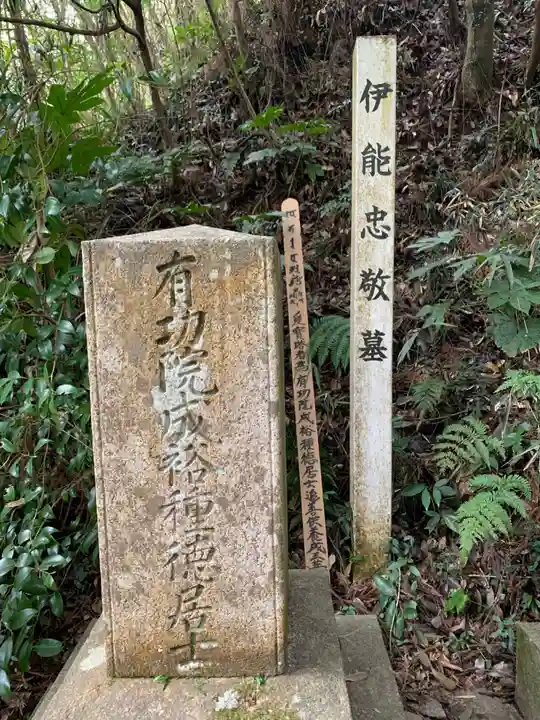 伊能忠敬墓
有功院成裕種徳居士追善供養
有功院成裕種徳居士